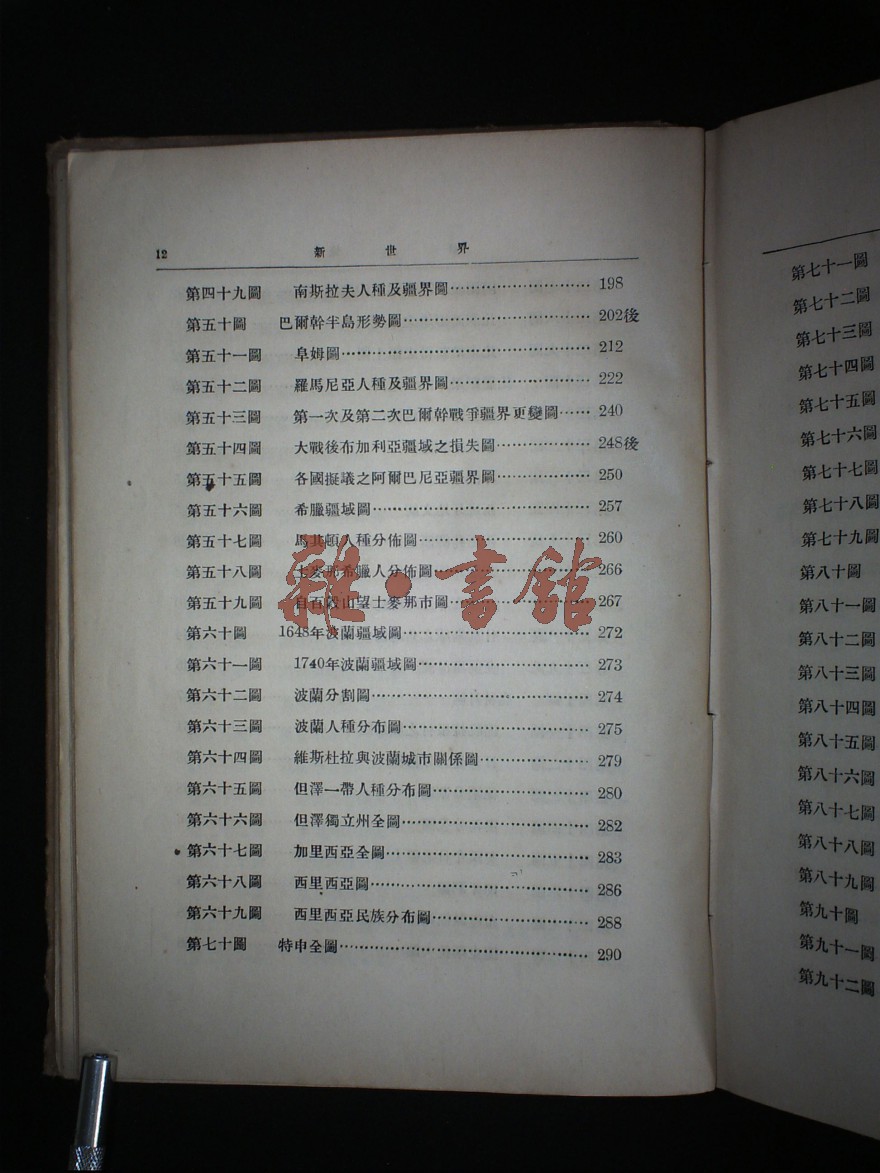 12 新世界
第四十九圖 南斯拉夫人種及疆界圖………………………198
第五十圖 巴爾幹半島形勢圖………………………202後
第五十一圖 阜姆圖………………………212
第五十二圖 羅馬尼亞人種及疆界圖………………………222
第五十三圖 第一次及第二次巴爾幹戰爭疆界更變圖……240
第五十四圖 大戰後布加利亞疆域之損失圖………………248後
第五十五圖 各國擬議之阿爾巴尼亞疆界圖………………250
第五十六圖 希臘疆域圖………………………257
第五十七圖 馬其頓人種分佈圖………………………260
第五十八圖 士麥那希臘人分佈圖………………………266
第五十九圖 自百穀山望士麥那市圖………………………267
第六十圖 1648年波蘭疆域圖………………………272
第六十一圖 1740年波蘭疆域圖………………………273
第六十二圖 波蘭分割圖………………………274
第六十三圖 波蘭人種分布圖………………………275
第六十四圖 維斯杜拉與波蘭城市關係圖………………279
第六十五圖 但澤一帶人種分布圖………………………280
第六十六圖 但澤獨立州全圖………………………282
第六十七圖 加里西亞全圖………………………283
第六十八圖 西里西亞圖………………………286
第六十九圖 西里西亞民族分布圖………………………288
第七十圖 特申全圖………………………290
雜·書館
第七十一圖
第七十二圖
第七十三圖
第七十四圖
第七十五圖
第七十六圖
第七十七圖
第七十八圖
第七十九圖
第八十圖
第八十一圖
第八十二圖
第八十三圖
第八十四圖
第八十五圖
第八十六圖
第八十七圖
第八十八圖
第八十九圖
第九十圖
第九十一圖
第九十二圖